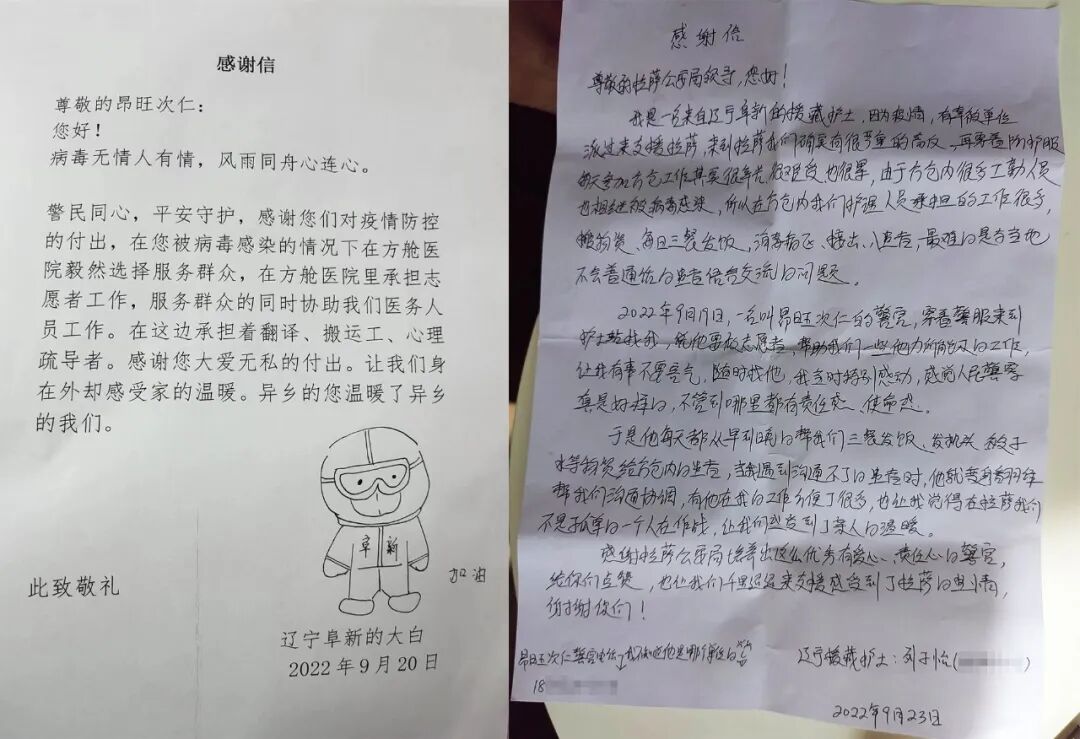 感谢信
尊敬的昂旺次仁：
您好！
病毒无情人有情，风雨同舟心连心。
警民同心，平安守护，感谢您们对疫情防控
的付出，在您被病毒感染的情况下在方舱医
院毅然选择服务群众，在方舱医院里承担志
愿者工作，服务群众的同时协助我们医务人
员工作。在这边承担着翻译、搬运工、心理
疏导者。感谢您大爱无私的付出。让我们身
在外却感受家的温暖。异乡的您温暖了异乡
的我们。
阜新
加油
此致敬礼
辽宁阜新的大白
2022年9月20日
感谢信
尊敬的拉萨公安局领导，您好！
我是一名来自辽宁阜新的援藏护士，因为疫情，有幸被单位
派过来支援拉萨，来到拉萨我们确实有很严重的高反，再穿着防护服
每天参加方仓工作其实很辛苦，很艰发也很累，由于方仓内很多工勤人员
也相继被病毒感染，所以在方仓内我们护理人员承担的工作很多，
搬物资、每日三餐发饭，消毒，接出入患者，最难的是与当地
不会普通话的患者语言交流的问题。
2022年9月19日，一名叫昂旺次仁的警官，穿着警服来到
护士站找我，说他要做志愿者，帮助我们一些他力所能及的工作，
让我有事不要客气，随时找他，我当时特别感动，感觉人民警察
真是好样的，不管到哪里都有责任感、使命感。
于是他每天都从早到晚的帮我们三餐发饭、发被子
水等物资给方仓内的患者，当我遇到沟通不了的患者时，他就变身翻译
帮我们沟通协调，有他在我的工作方便了很多，也让我觉得在拉萨我们
不是孤单的一个人在作战，让我们感受到了亲人的温暖。
感谢拉萨公安局培养出这么优秀有爱心、责任心的警官，
给你们点赞，也让我们千里迢迢来支援感受到了拉萨的热情，
谢谢你们！
昂旺次仁警官电话，我不知道他是哪个单位的
18
辽宁援藏护士：刘子怡（
2022年9月23日